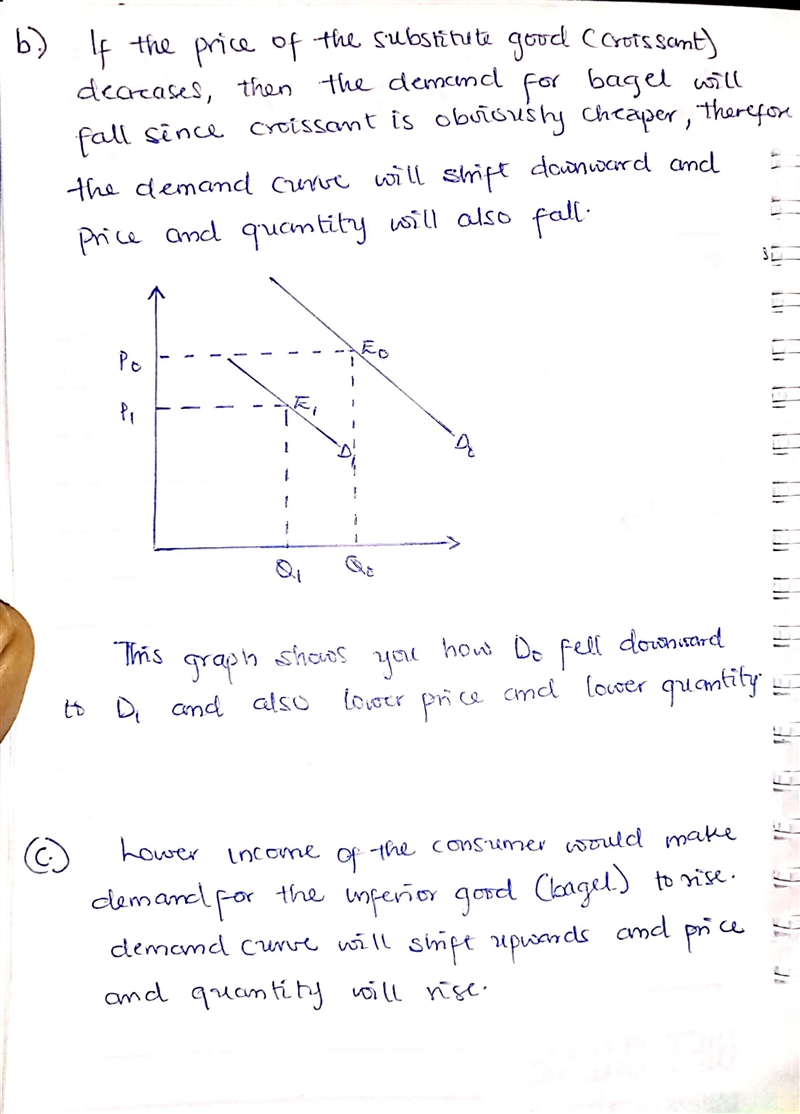 b.) If the price of the substitute good (croissant)
decreases, then the demand for bagel will
fall since croissant is obviously cheaper, therefore
the demand curve will shift downward and
price and quantity will also fall.
P0
E0
P1
E1
D1
D0
Q1
Q0
This graph shows you how D0 fell downward
to D1 and also lower price and lower quantity.
(c.) Lower income of the consumer would make
demand for the inferior good (bagel) to rise.
demand curve will shift upwards and price
and quantity will rise.